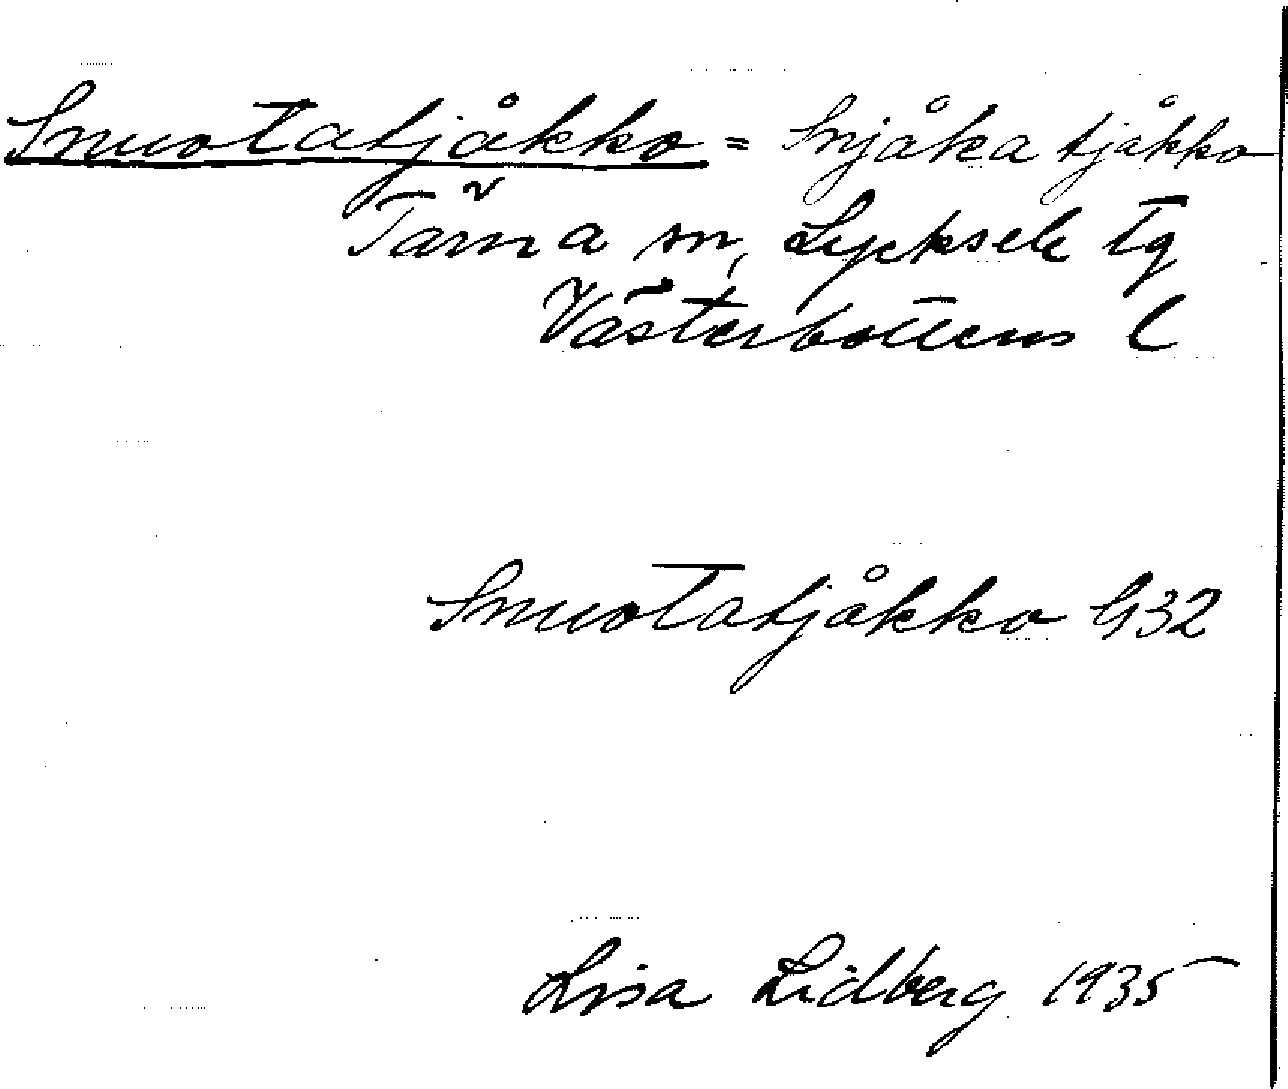 Smuotatjåkko = Snjåka tjåkko
Tärna sn, Lycksele tg
Västerbottens l
Smuotatjåkko G32
Lisa Lidberg 1935